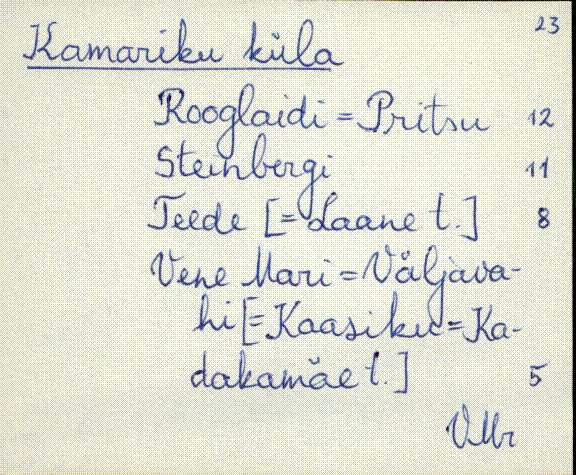 23
Kamariku küla
Rooglaidi = Pritsu 12
Steinbergi 11
Teede [= Laane t.] 8
Vene Mari = Väljava-
hi [= Kaasiku = Ka-
dakamäe t.] 5
VMr